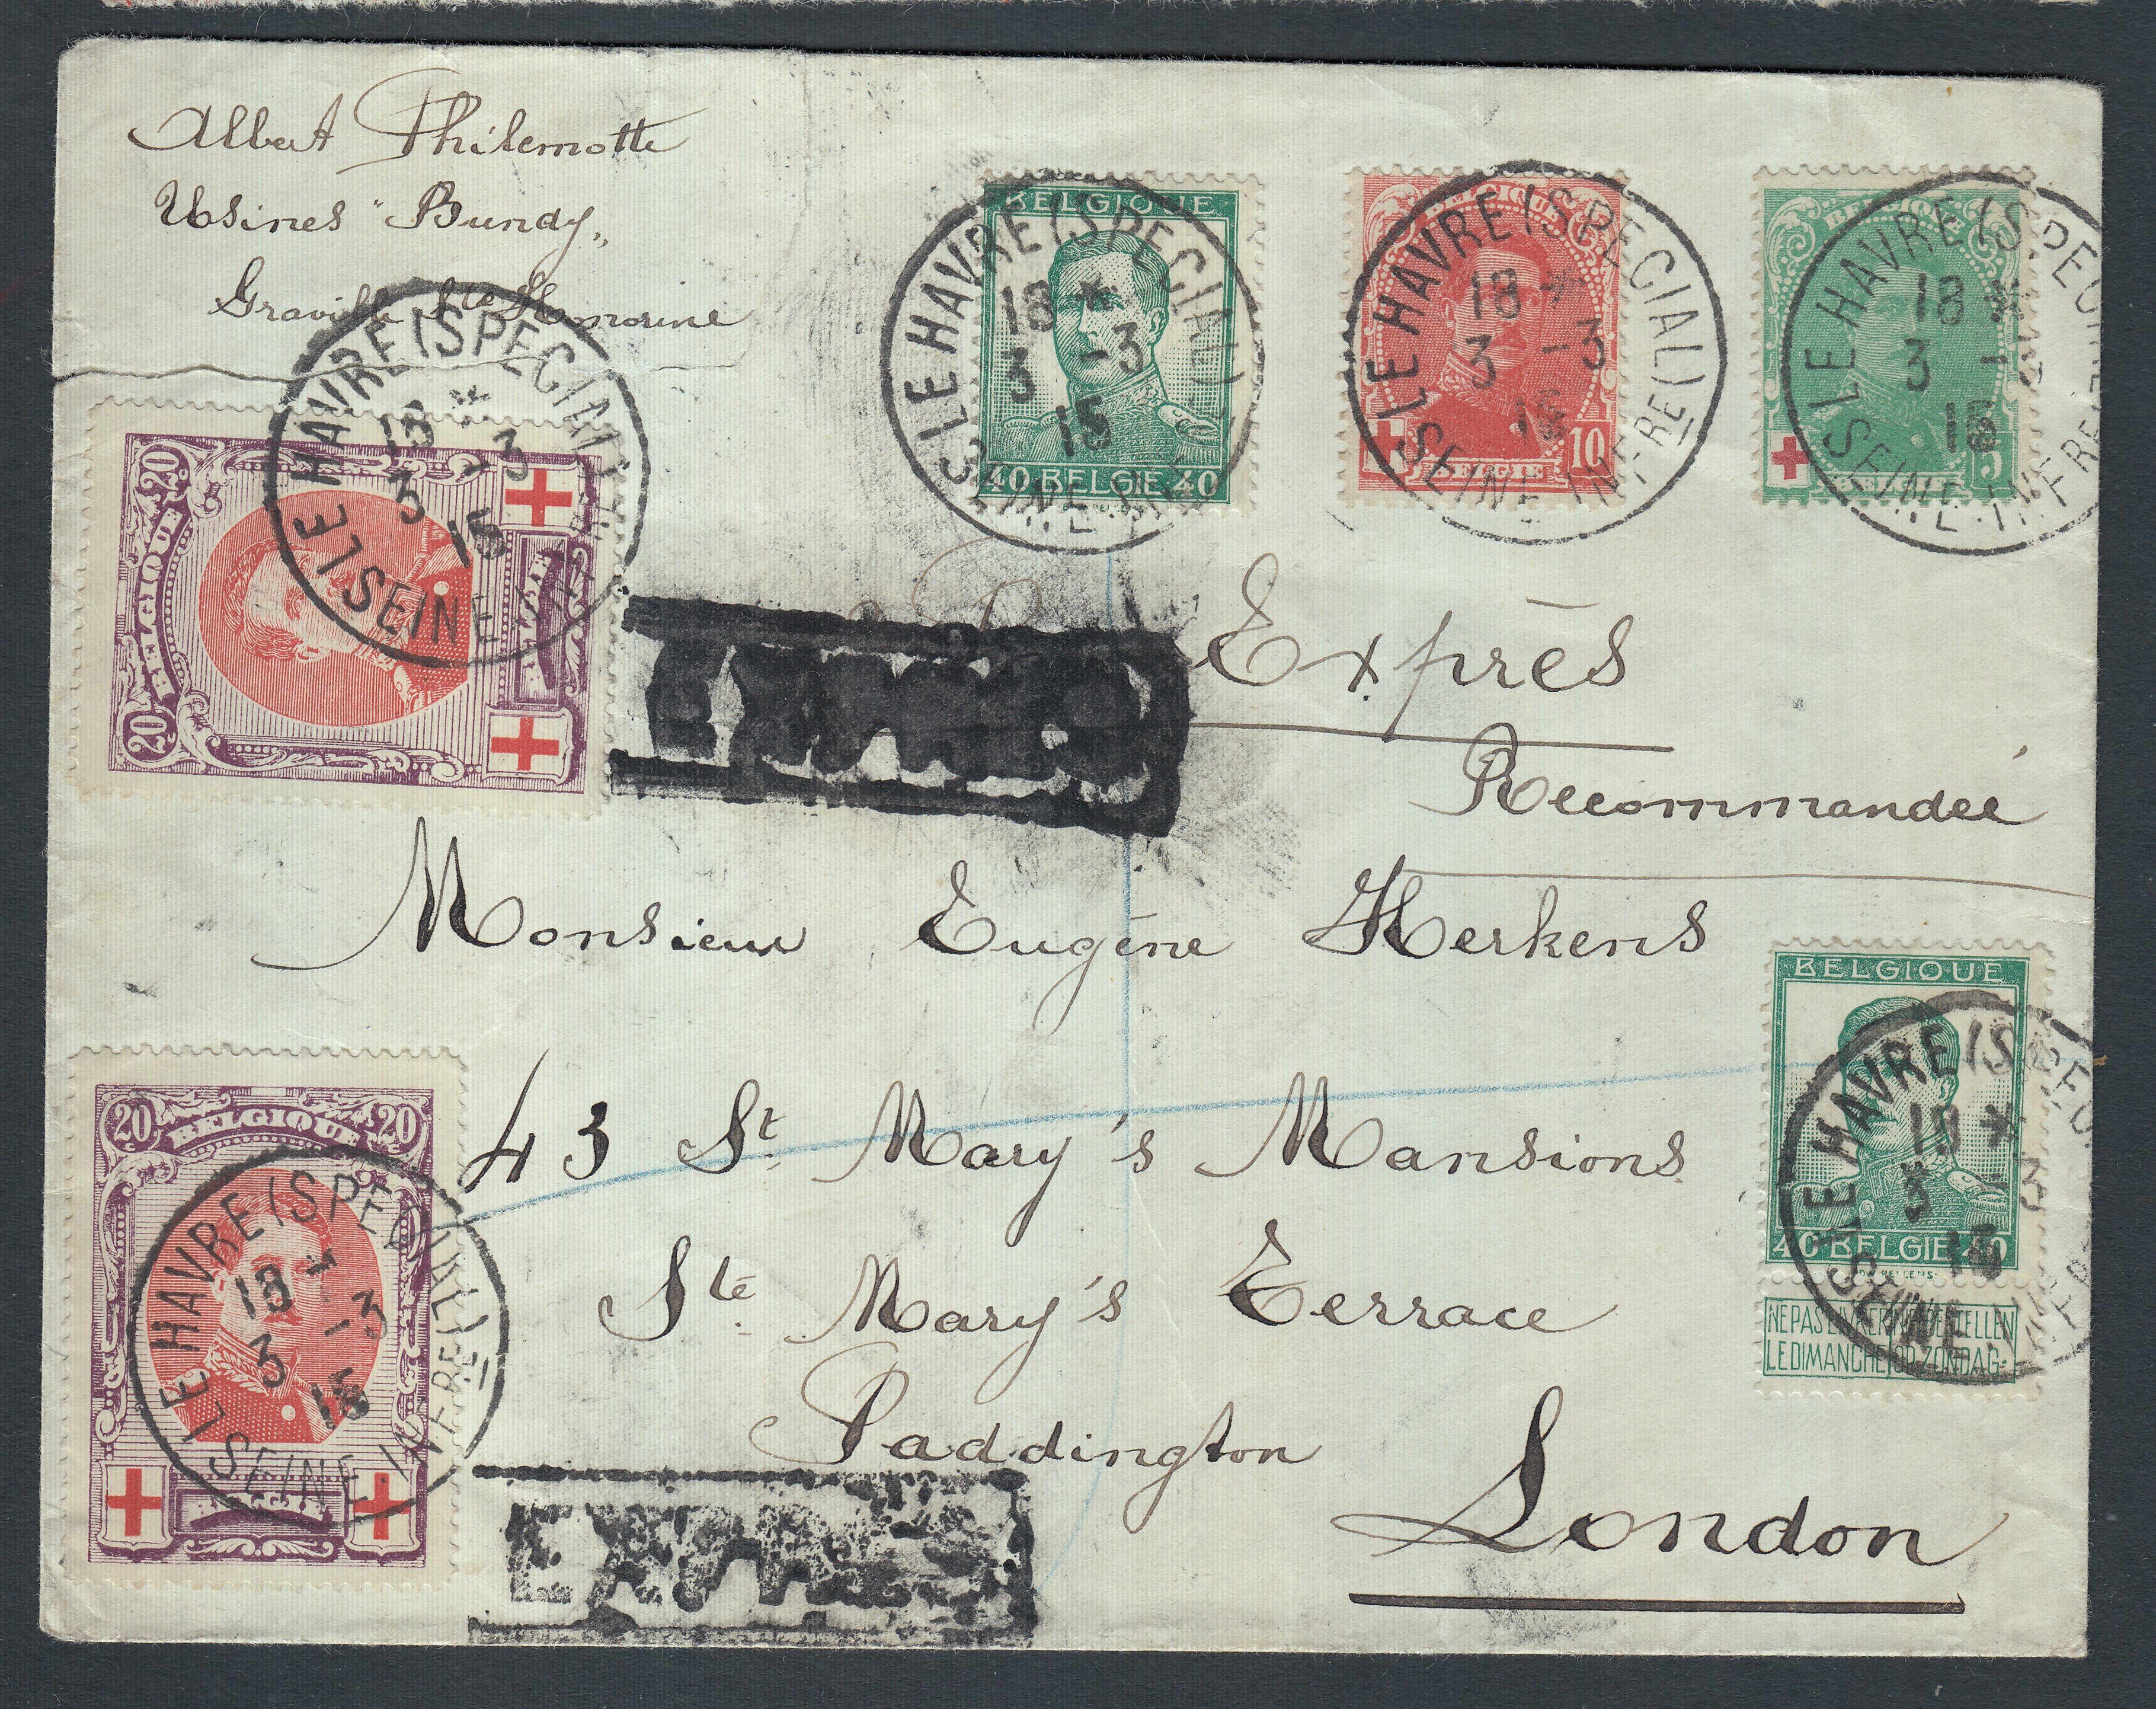 Albert Philemotte
Usines "Bundy"
Graville Ste Honorine
BELGIQUE
40 BELGIE 40
LE HAVRE (SPECIAL)
18 *
3 -3
15
SEINE-INFRE
BELGIQUE
10
BELGIE
LE HAVRE (SPECIAL)
18 *
3 -3
15
SEINE-INFRE
BELGIQUE
5
LE HAVRE (SPEC
18 *
3 -
15
SEINE-INFRE
20 BELGIQUE 20
LE HAVRE (SPECIAL)
18 *
3 -3
15
SEINE
Exprès
Recommandée
Monsieur Eugène Herkens
43 St Mary's Mansions
Ste Mary's Terrace
Paddington
London
BELGIQUE
40 BELGIE 40
NE PAS LIVRER NIET BESTELLEN
LE DIMANCHE OP ZONDAG
LE HAVRE (SPEC
3 -3
15
SEINE
20 BELGIQUE 20
BELGIE
LE HAVRE (SPECIAL)
18 *
3 -3
15
SEINE-INFRE